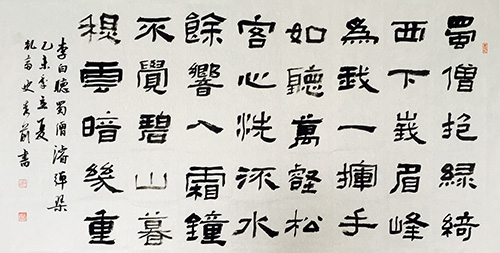 蜀僧抱綠綺
西下峩眉峰
為我一揮手
如聽萬壑松
客心洗流水
餘響入霜鐘
不覺碧山暮
秋雲暗幾重
李白聽蜀僧濬彈琴
乙未年立夏
書